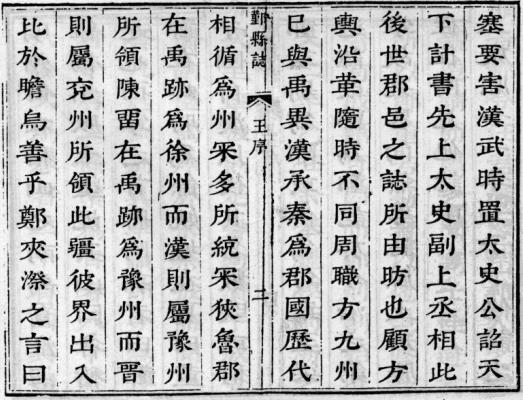 塞要害漢武時置太史公詔天
下計書先上太史副上丞相此
後世郡邑之誌所由昉也顧方
輿沿革隨時不同周職方九州
已與禹異漢承秦爲郡國歷代
鄞縣誌
王序
二
相循爲州冞多所統冞狹魯郡
在禹跡爲徐州而漢則屬豫州
所領陳畱在禹跡爲豫州而晉
則屬兗州所領此疆彼界出入
比於瞻烏善乎鄭夾漈之言曰